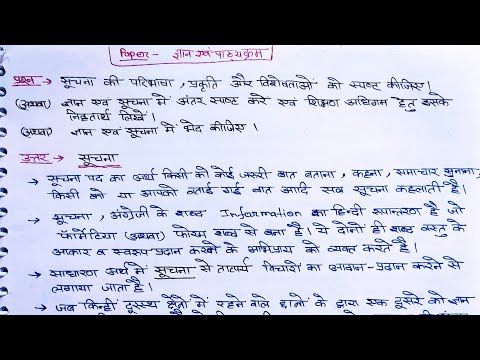 Paper - ज्ञान एवं पाठ्यक्रम
प्रश्न → सूचना की परिभाषा, प्रकृति और विशेषताओं को स्पष्ट कीजिए।
(अथवा) ज्ञान एवं सूचना में अंतर स्पष्ट करें एवं शिक्षण अधिगम हेतु इसके
निहितार्थ लिखें।
(अथवा) ज्ञान एवं सूचना में भेद कीजिए।
उत्तर → सूचना
→ सूचना पद का अर्थ किसी को कोई जरूरी बात बताना, कहना, समाचार सुनाना,
किसी को या आपको बताई गई बात आदि सब सूचना कहलाती है।
→ सूचना, अंग्रेजी के शब्द Information का हिन्दी रूपान्तरण है जो
फॉर्मेटिया (अथवा) फोरम शब्द से बना है। ये दोनों ही शब्द वस्तु के
आकार व स्वरूप प्रदान करने के अभिप्राय को व्यक्त करते है।
→ साधारण अर्थ में सूचना से तात्पर्य विचारों का आदान-प्रदान करने से
लगाया जाता है।
→ जब किन्हीं दूरस्थ क्षेत्रों में रहने वाले छात्रों के द्वारा एक दूसरे को ज्ञान